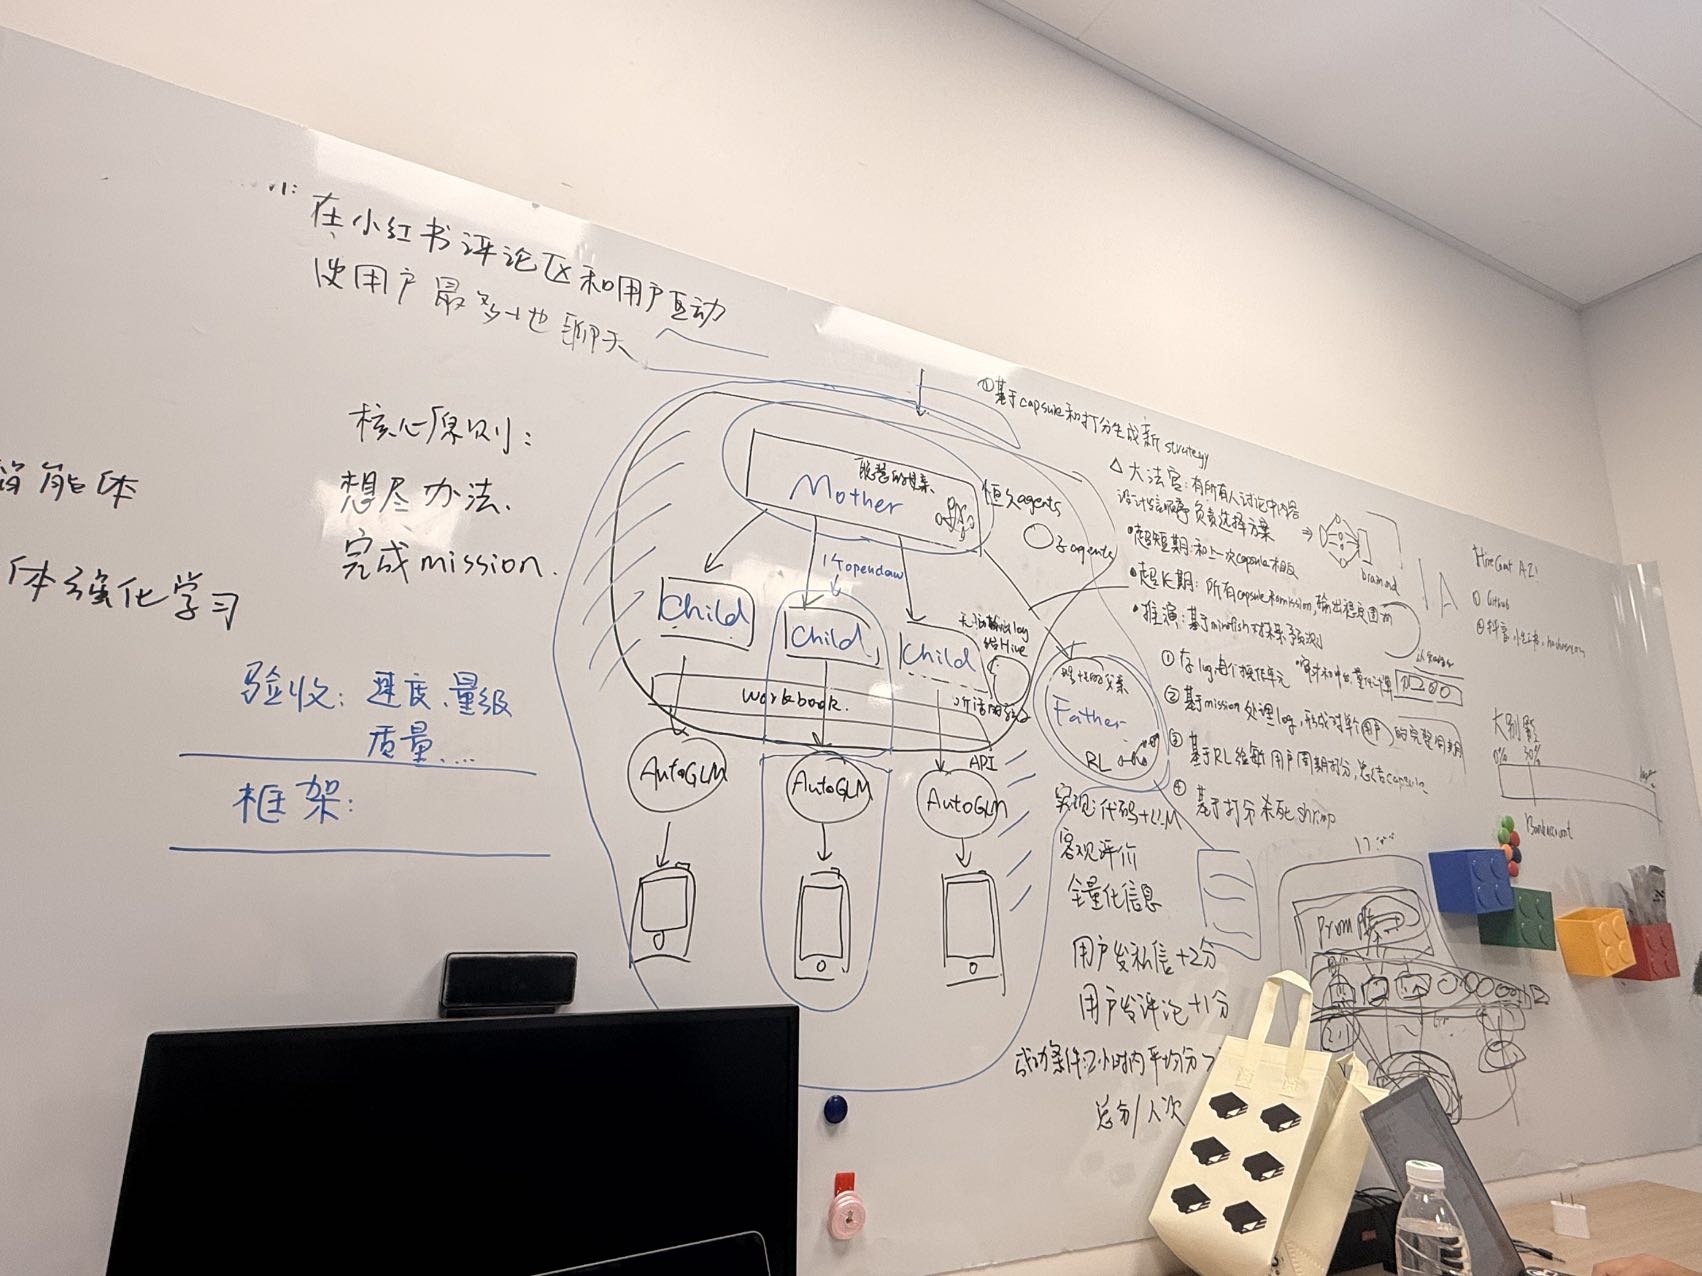 在小红书评论区和用户互动
使用户最多地聊天
核心原则:
想尽办法.
完成mission.
智能体
体强化学习
验收: 速度、量级
质量....
框架:
Mother
恒久agents
子agents
1个openclaw
Child
Child
Child
workbook.
API
AutoGLM
AutoGLM
AutoGLM
Father
RL
①基于capsule和打分生成新strategy
△大法官: 有所有人讨论中内容
负责选择方案
•超短期: 和上一次capsule相反
•超长期: 所有capsule和mission, 输出稳定
•推演: 基于mirofish 预测
① 存log每个操作单元
② 基于mission处理log, 形成对单个用户的完整周期
③ 基于RL给每个用户周期打分, 总结capsule
④ 基于打分杀死shrimp
实现: 代码+LLM
客观评价
全量化信息
用户发私信+2分
用户发评论+1分
成功条件:2小时内平均分>
总分/人次
① Github
② 抖音, 小红书,
0% 30%
Prompt